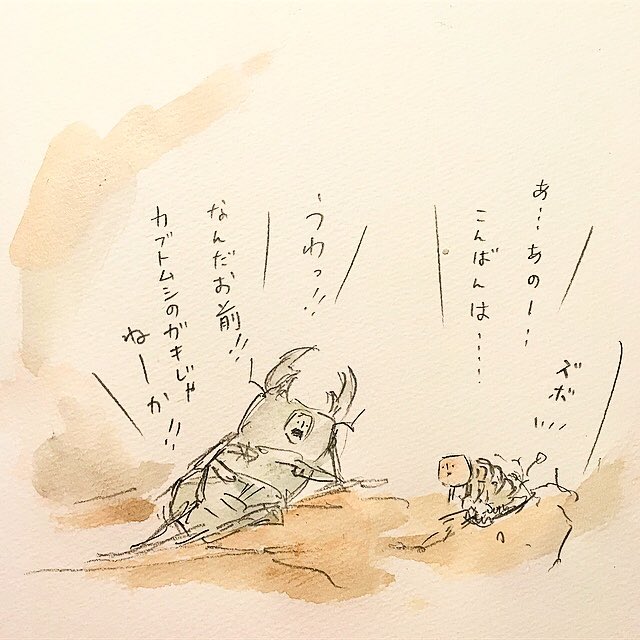 あ…あのー…
こんばんは……
ズボッ
うわっ!!
なんだお前!!
カブトムシのガキじゃ
ねーか!!